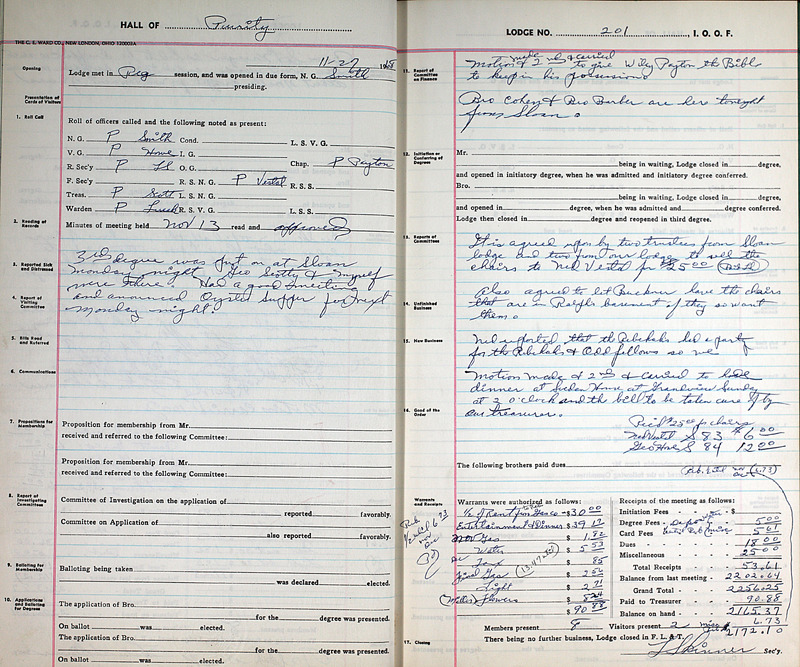 HALL OF Purity
THE C. E. WARD CO., NEW LONDON, OHIO
11-27
Opening
Lodge met in Reg session, and was opened in due form, N. G. Smith
presiding.
Presentation of Cards of Visitors
1. Roll Call
Roll of officers called and the following noted as present:
N. G. P Smith Cond. L. S. V. G.
V. G. P Howe I. G. Chap. P Payton
R. Sec'y P O. G.
F. Sec'y R. S. N. G. P Vestal R. S. S.
Treas. P Scott L. S. N. G.
Warden P R. S. V. G. L. S. S.
2. Reading of Records
Minutes of meeting held Nov 13 read and approved
3. Reported Sick and Distressed
3rd degree was put on at Sloan
Monday night Geo Scotty & myself
were there. Had a good meeting
4. Report of Visiting Committee
and announced Oyster Supper for next
Monday night.
5. Bills Read and Referred
6. Communications
7. Propositions for Membership
Proposition for membership from Mr.
received and referred to the following Committee:
Proposition for membership from Mr.
received and referred to the following Committee:
8. Report of Investigating Committees
Committee of Investigation on the application of
reported favorably.
Committee on Application of
also reported favorably.
9. Balloting for Membership
Balloting being taken
was declared elected.
10. Applications and Balloting for Degrees
The application of Bro.
for the degree was presented.
On ballot was elected.
The application of Bro.
for the degree was presented.
On ballot was elected.
LODGE NO. 201, I. O. O. F.
11. Report of Committee on Finance
Motion made & 2nd & carried to give Wiley Payton the Bible
to keep in his possession.
Bro Cohen & Bro Barber are here tonight
from Sloan.
12. Initiation or Conferring of Degrees
Mr.
being in waiting, Lodge closed in degree,
and opened in initiatory degree, when he was admitted and initiatory degree conferred.
Bro.
being in waiting, Lodge closed in degree,
and opened in degree, when he was admitted and degree conferred.
Lodge then closed in degree and reopened in third degree.
13. Reports of Committees
It is agreed upon by two trustees from Sloan
lodge and two from our lodge to sell the
chairs to Ned Vestal for $25.00
14. Unfinished Business
Also agreed to let Buckner have the chairs
that are in Ralph's basement if they so want
them.
15. New Business
Ned reported that the Rebekahs had a party
for the Rebekahs & Odd fellows so we
Motion made & 2nd & carried to have
dinner at House at Grandview Sunday
at 2 o'clock and the bill to be taken care of by
16. Good of the Order
our treasurer.
Rec'd $25.00 for chairs
Ned Vestal S 83 $6.00
Geo Howe S 84 12.00
The following brothers paid dues
(6.73)
Warrants and Receipts
Warrants were authorized as follows:
1/2 of Rent $30.00
Entertainment & Dinner $39.12
Gas $1.82
Water $5.53
Tax $.85
Gas $2.52
Light $2.71
Flowers $8.24
$90.88
(13.47)
Receipts of the meeting as follows:
Initiation Fees $
Degree Fees 5.00
Card Fees 5.61
Dues 18.00
Miscellaneous 25.00
Total Receipts 53.61
Balance from last meeting 2202.64
Grand Total 2256.25
Paid to Treasurer 90.88
Balance on hand 2165.37
6.73
2172.10
Members present 8 Visitors present 2
17. Closing
There being no further business, Lodge closed in F. L. & T.
Skinner Sec'y.